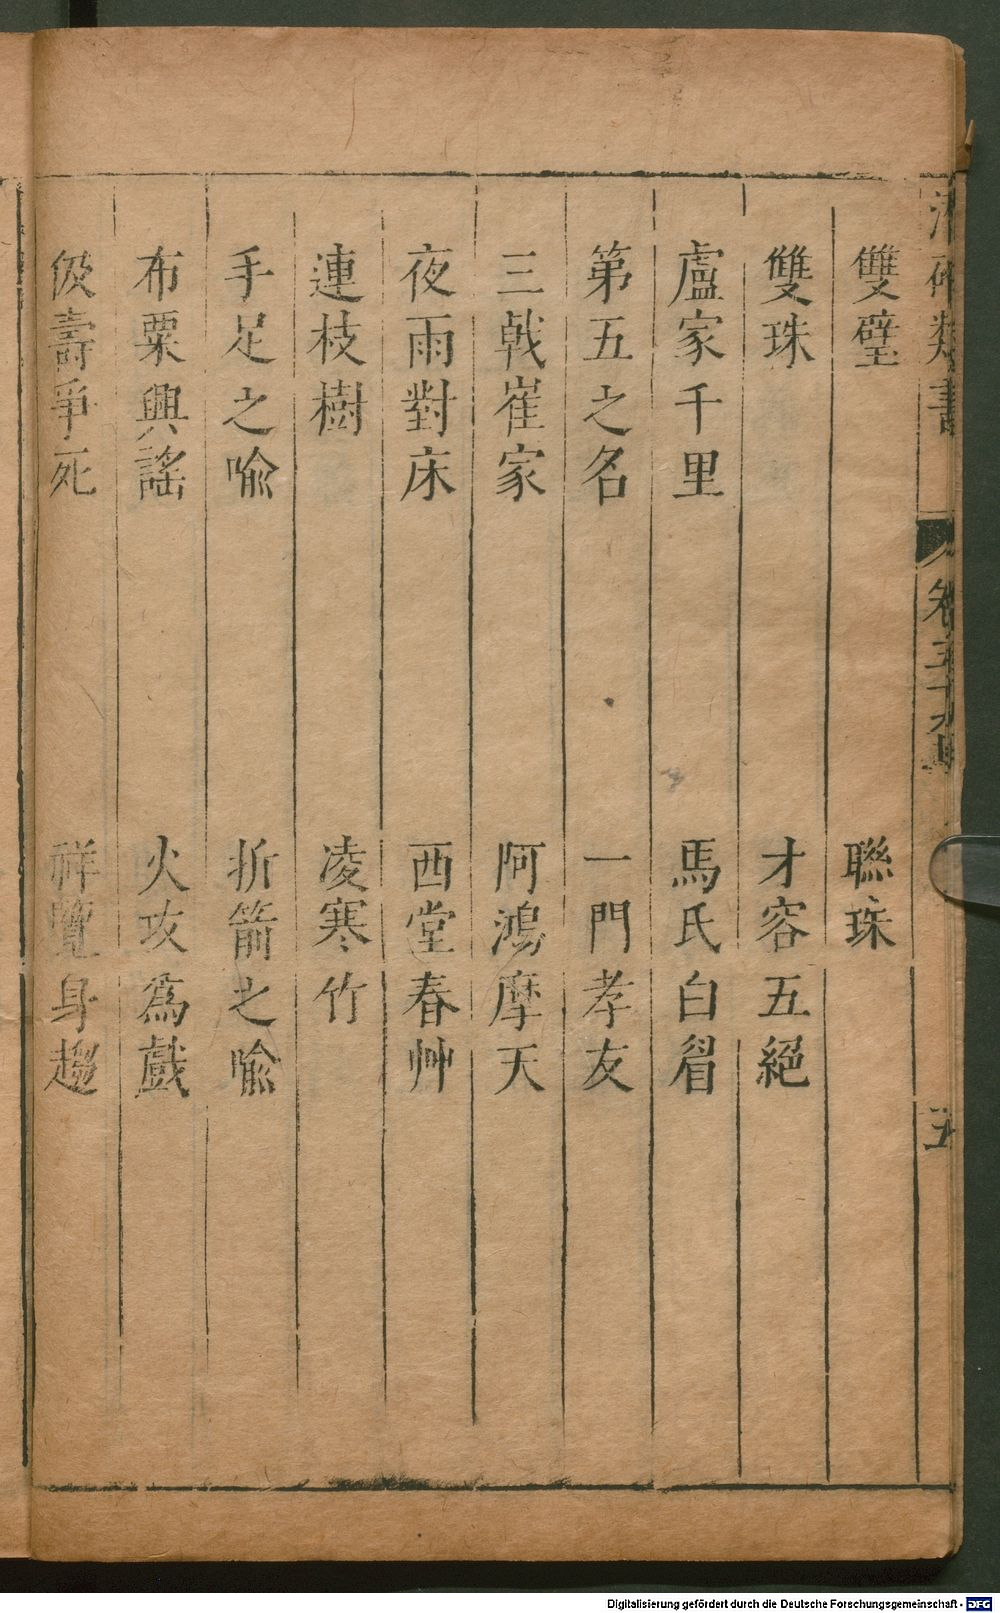 雙璧 聯珠
雙珠 才容五絕
盧家千里 馬氏白眉
第五之名 一門孝友
三戟崔家 阿鴻摩天
夜雨對床 西堂春艸
連枝樹 凌寒竹
手足之喻 折箭之喻
布粟興謠 火攻爲戲
伋壽爭死 祥覽身趨
類書
卷五十
五
Digitalisierung gefördert durch die Deutsche Forschungsgemeinschaft - DFG